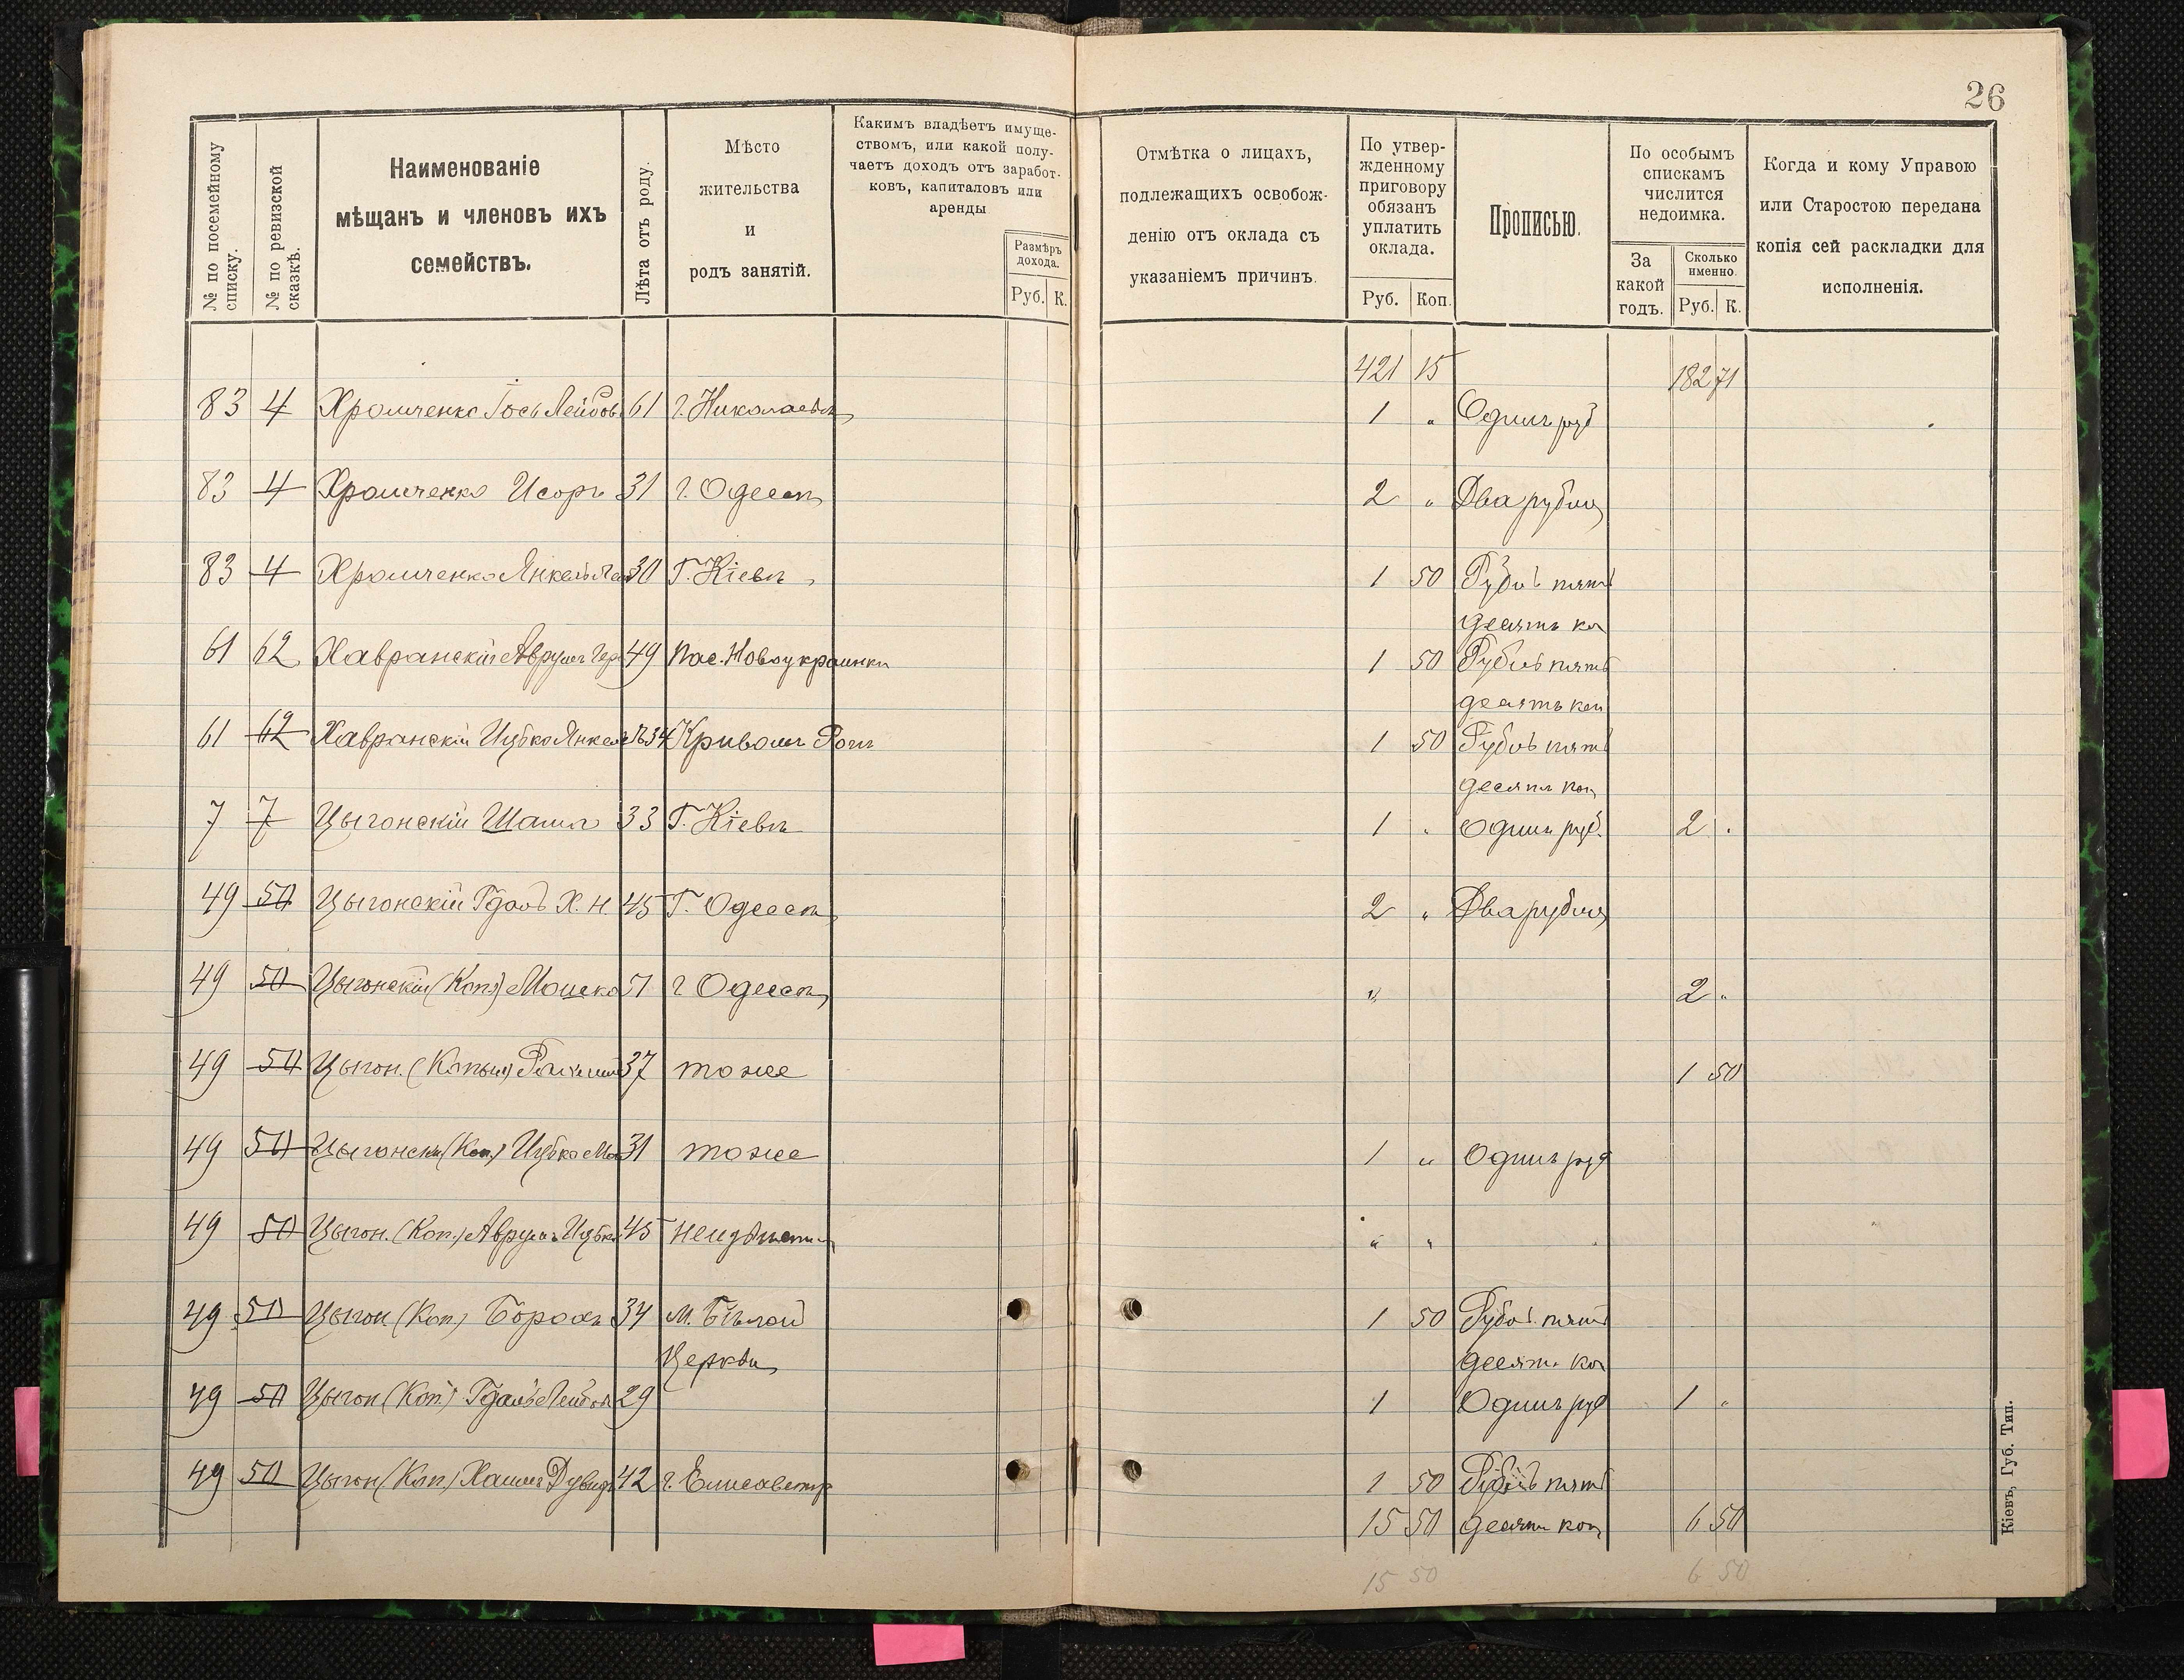 26
№ по посемейному списку.
№ по ревизской сказкѣ.
Наименованіе
мѣщанъ и членовъ ихъ
семействъ.
Лѣта отъ роду.
Мѣсто
жительства
и
родъ занятій.
Какимъ владѣетъ имуще-
ствомъ, или какой полу-
чаетъ доходъ отъ заработ-
ковъ, капиталовъ или
аренды
Размѣръ
дохода.
Руб. К.
Отмѣтка о лицахъ,
подлежащихъ освобож-
денію отъ оклада съ
указаніемъ причинъ.
По утвер-
жденному
приговору
обязанъ
уплатить
оклада.
Руб. Коп.
Прописью.
По особымъ
спискамъ
числится
недоимка.
За
какой
годъ.
Сколько
именно.
Руб. К.
Когда и кому Управою
или Старостою передана
копія сей раскладки для
исполненія.
421 15 182 71
83 4 Хромченко Іось Лейбов. 61 г. Николаевъ 1 " Одинъ руб
83 4 Хромченко Исоръ 31 г. Одесса 2 " Два рубля
83 4 Хромченко Янкель 30 Г. Кіевъ 1 50 Рубль пять
десятъ ко
61 62 Хавранскій Аврумъ Гер 49 Пос. Новоукраинки 1 50 Рубль пять
десятъ коп
61 62 Хавранскій Ицко Янкел 34 Кривомъ Рогъ 1 50 Рубль пять
десятъ коп
7 7 Цыгонскій 33 Г. Кіевъ 1 " Одинъ руб. 2 "
49 50 Цыгонскій Гдаль Х. Н. 45 Г. Одесса 2 " Два рубля
49 50 Цыгонскій (Коп) Мошко 51 г Одесса " 2 "
49 50 Цыгон. 37 тоже 1 50
49 50 Цыгонскій (Коп.) Ицко 31 тоже 1 " Одинъ руб
49 50 Цыгон. (Коп.) Аврумъ Ицко 45 " "
49 50 Цыгон (Коп) Борохъ 34 м. Бѣлой 1 50 Рубль пять
Церкви десятъ ко
49 50 Цыгон (Коп.) Гдаль Лейбов 29 1 Одинъ руб 1 "
49 50 Цыгон (Коп.) Хаимъ Дувид 42 г. Елисаветгр 1 50 Рубль пять
15 50 десять коп 6 50
15 50 6 50
Кіевъ, Губ. Тип.